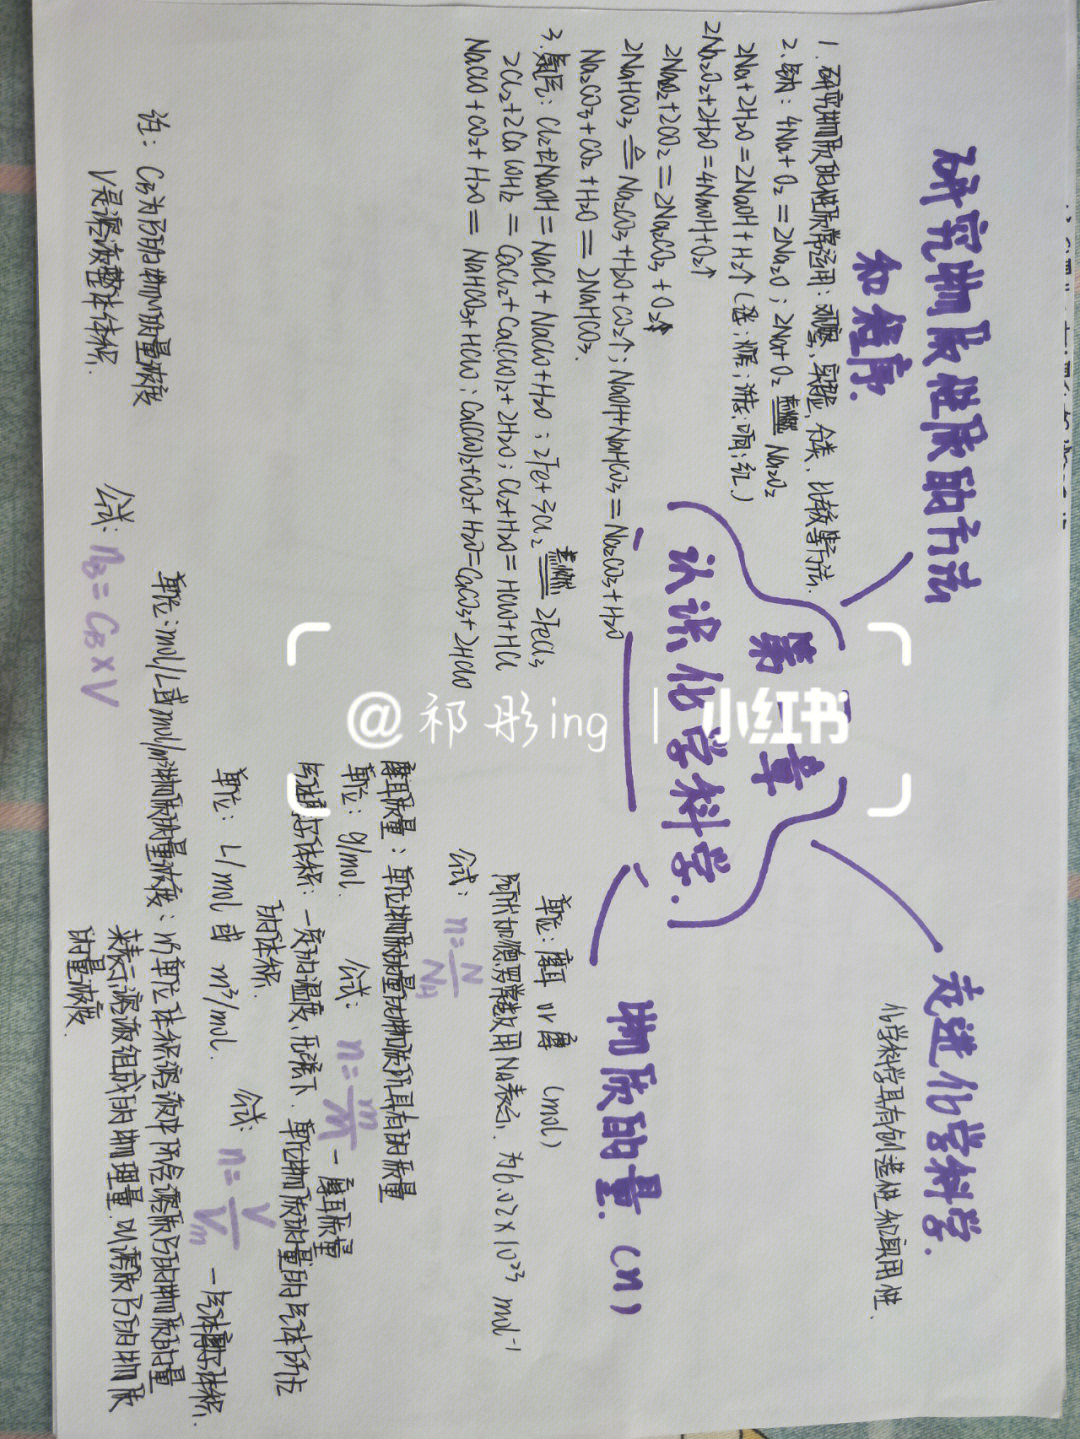 第一章
认识化学科学.
走进化学科学.
化学科学具有创造性和实用性.
研究物质性质的方法
和程序.
1. 研究物质的性质常运用：观察、实验、分类、比较等方法.
2. 钠：4Na + O₂ = 2Na₂O；2Na + O₂ 点燃 Na₂O₂
2Na + 2H₂O = 2NaOH + H₂↑（浮；熔；游；响；红）
2Na₂O₂ + 2H₂O = 4NaOH + O₂↑
2Na₂O₂ + 2CO₂ = 2Na₂CO₃ + O₂
2NaHCO₃ △ Na₂CO₃ + H₂O + CO₂↑；NaOH + NaHCO₃ = Na₂CO₃ + H₂O
Na₂CO₃ + CO₂ + H₂O = 2NaHCO₃.
3. 氯气：Cl₂ + 2NaOH = NaCl + NaClO + H₂O；2Fe + 3Cl₂ 点燃 2FeCl₃
2Cl₂ + 2Ca(OH)₂ = CaCl₂ + Ca(ClO)₂ + 2H₂O；Cl₂ + H₂O = HClO + HCl
NaClO + CO₂ + H₂O = NaHCO₃ + HClO；Ca(ClO)₂ + CO₂ + H₂O = CaCO₃ + 2HClO
物质的量.（n）
单位：摩耳 or 摩 （mol）
阿伏加德罗常数用NA表示. 为6.02×10²³ mol⁻¹
公式：n = N/NA
摩耳质量：单位物质的量的物质所具有的质量
单位：g/mol. 公式：n = m/M — 摩耳质量
气体摩尔体积：一定的温度、压强下. 单位物质的量的气体所占
的体积.
单位：L/mol 或 m³/mol. 公式：n = V/Vm — 气体摩尔体积.
物质的量浓度：以单位体积溶液中所含溶质B的物质的量
来表示溶液组成的物理量. 叫溶质B的物质
的量浓度.
单位：mol/L或mol/m³
公式：nB = CB × V
注：CB为B的物质的量浓度
V是溶液整体体积.
@祁彤ing | 小红书